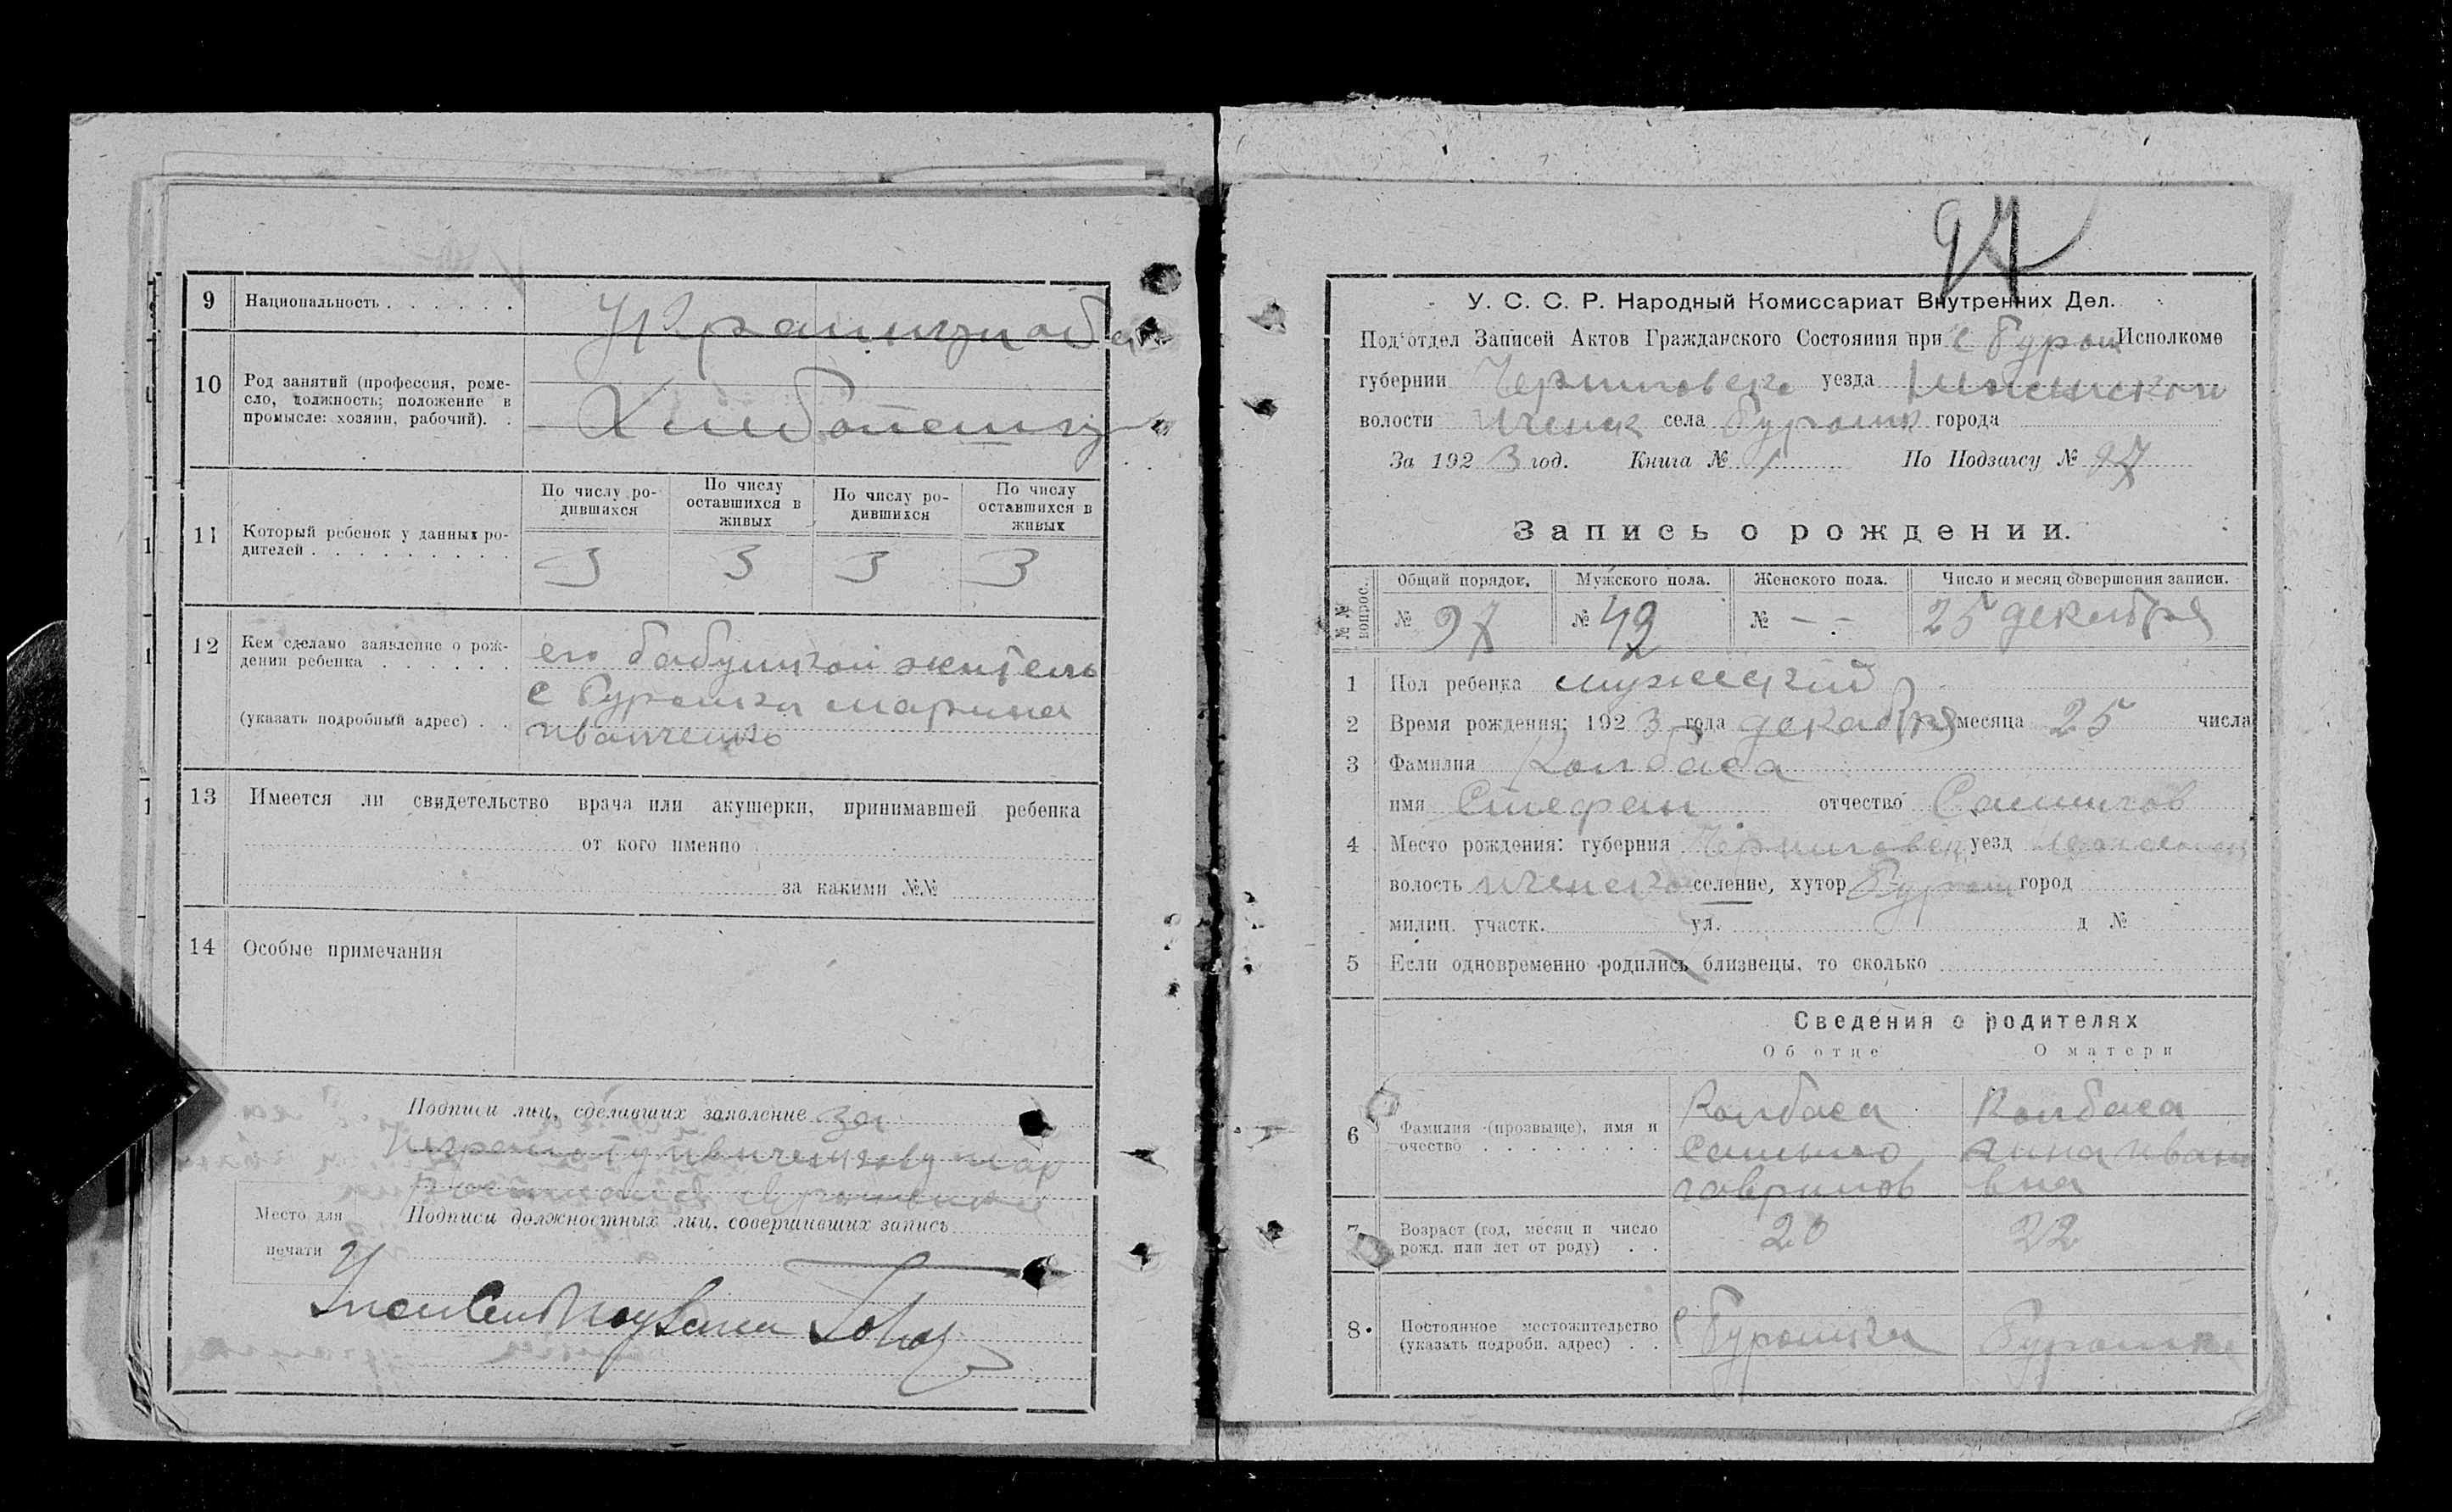 9 Национальность . . . . . .
10 Род занятий (профессия, реме-
сло, должность; положение в
промысле: хозяин, рабочий). .
11 Который ребенок у данных ро-
дителей . . . . . . . . .
По числу ро-
дившихся
По числу
оставшихся в
живых
По числу ро-
дившихся
По числу
оставшихся в
живых
3 3 3 3
12 Кем сделано заявление о рож-
дении ребенка . . . . . .
(указать подробный адрес) . .
его бабушкой житель
с Буромки марина
иванченко
13 Имеется ли свидетельство врача или акушерки, принимавшей ребенка
от кого именно
за какими №№
14 Особые примечания
Подписи лиц, сделавших заявление за
Место для
печати
Подписи должностных лиц, совершивших запись
97
У. С. С. Р. Народный Комиссариат Внутренних Дел.
Под'отдел Записей Актов Гражданского Состояния при с Буром Исполкоме
губернии Черниговско уезда
волости Иченск села Буромк города
За 1923 год. Книга № 1 По Подзагсу № 97
Запись о рождении.
№№ вопрос.
Общий порядок. Мужского пола. Женского пола. Число и месяц совершения записи.
№ 97 № 42 № -.- 25 декабря
1 Пол ребенка мужеский
2 Время рождения: 1923 года декабря месяца 25 числа
3 Фамилия Колбаса
имя Стефан отчество
4 Место рождения: губерния Черниговск уезд
волость иченско селение, хутор Буром город
милиц. участк. ул. д №
5 Если одновременно родились близнецы, то сколько
Сведения о родителях
Об отце О матери
6 Фамилия (прозвыще), имя и
очество . . . . . . . .
Колбаса
гаврилов
Колбаса
Анна Ивано
вна
7 Возраст (год, месяц и число
рожд. или лет от роду) . .
20 22
8 Постоянное местожительство
(указать подробн. адрес) . .
с Буромка Буромка